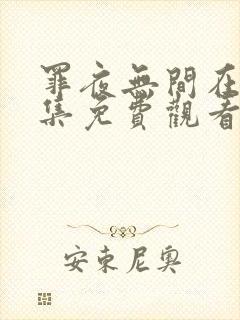 罪夜無間在
集免費觀看
安東尼奧